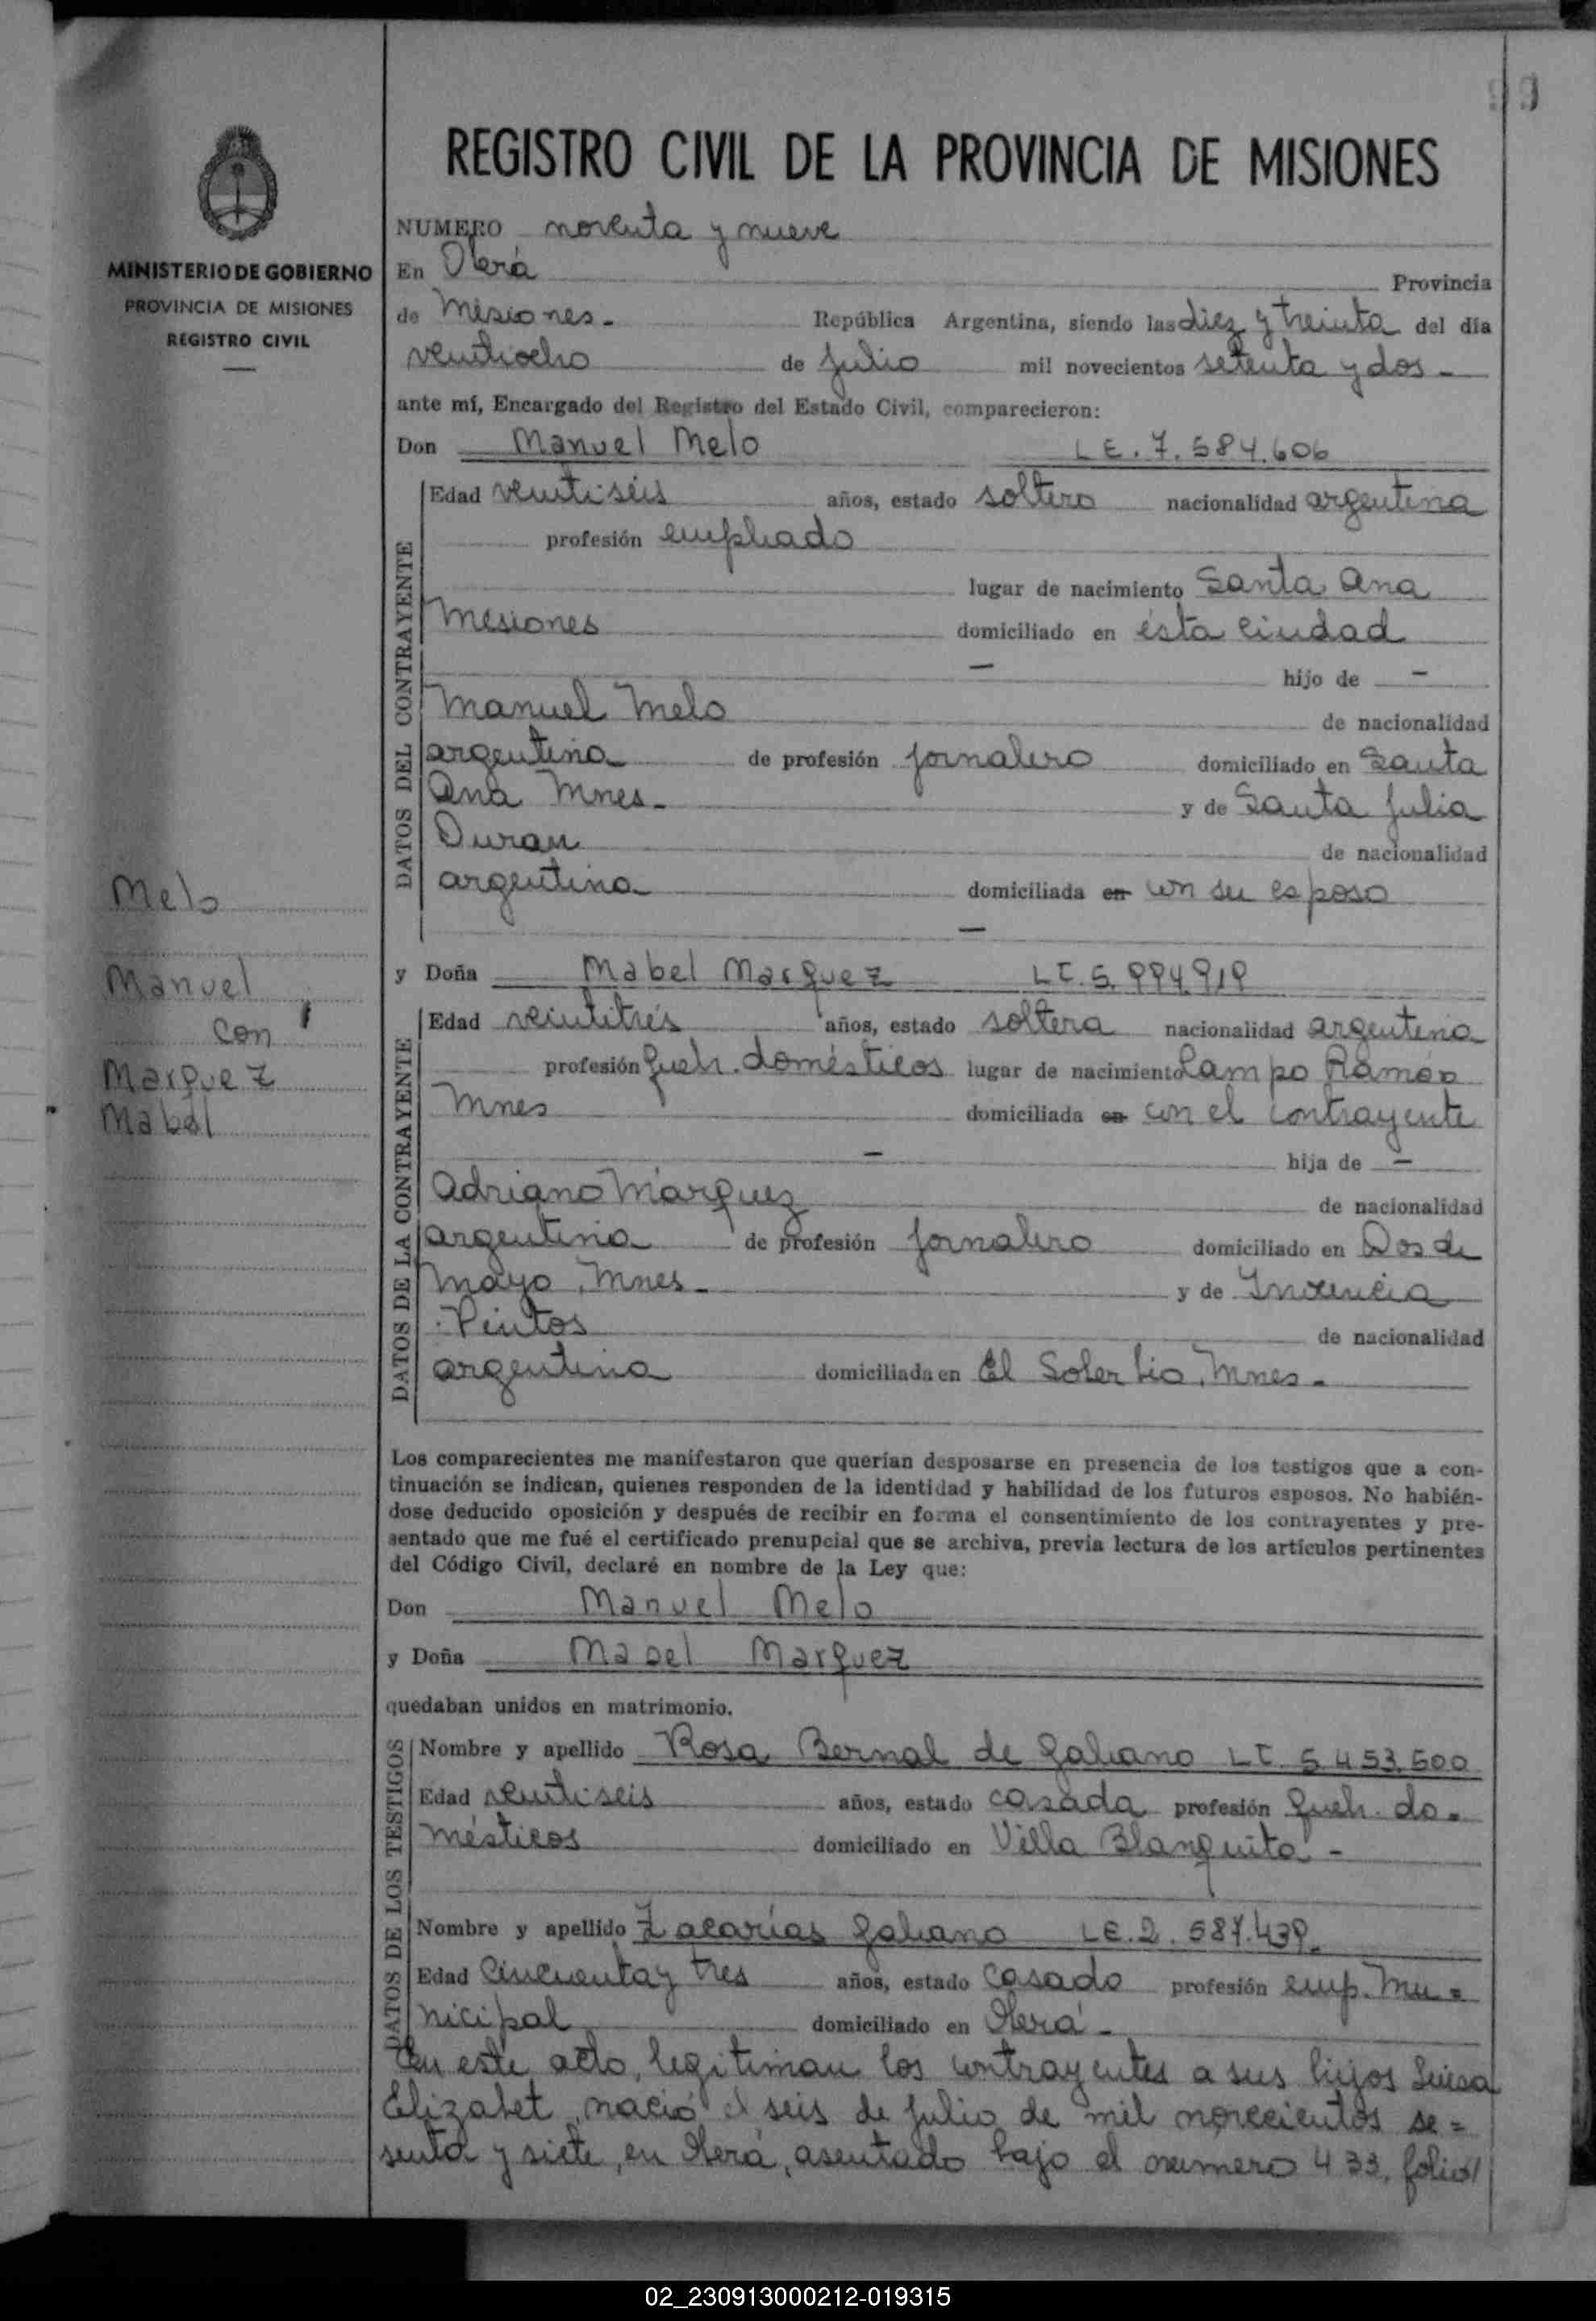 99
REGISTRO CIVIL DE LA PROVINCIA DE MISIONES
NUMERO noventa y nueve
MINISTERIO DE GOBIERNO
PROVINCIA DE MISIONES
REGISTRO CIVIL
En Oberá Provincia
de Misiones.- República Argentina, siendo las diez y treinta del día
veintiocho de julio mil novecientos setenta y dos -
ante mí, Encargado del Registro del Estado Civil, comparecieron:
Don Manuel Melo LE. 7.584.606
DATOS DEL CONTRAYENTE
Edad veintiseis años, estado soltero nacionalidad argentina
profesión empleado
lugar de nacimiento Santa Ana
Misiones domiciliado en ésta ciudad
- hijo de -
Manuel Melo de nacionalidad
argentina de profesión jornalero domiciliado en Santa
Ana Mnes.- y de Santa Julia
Duran de nacionalidad
argentina domiciliada en con su esposo
-
Melo
Manuel
con
Marquez
Mabel
y Doña Mabel Marquez LC. 5.994.919
DATOS DE LA CONTRAYENTE
Edad veintitrés años, estado soltera nacionalidad argentina
profesión queh. domésticos lugar de nacimiento Campo Ramón
Mnes domiciliada en con el contrayente
- hija de -
Adriano Márquez de nacionalidad
argentina de profesión jornalero domiciliado en Dos de
Mayo, Mnes.- y de
Pintos de nacionalidad
argentina domiciliada en El Soberbio, Mnes.-
Los comparecientes me manifestaron que querían desposarse en presencia de los testigos que a con-
tinuación se indican, quienes responden de la identidad y habilidad de los futuros esposos. No habién-
dose deducido oposición y después de recibir en forma el consentimiento de los contrayentes y pre-
sentado que me fué el certificado prenupcial que se archiva, previa lectura de los artículos pertinentes
del Código Civil, declaré en nombre de la Ley que:
Don Manuel Melo
y Doña Mabel Marquez
quedaban unidos en matrimonio.
DATOS DE LOS TESTIGOS
Nombre y apellido Rosa Bernal de Galeano LC. 5.453.500
Edad veintiseis años, estado casada profesión queh. do-
mésticos domiciliado en Villa Blanquita -
Nombre y apellido Zacarías Galeano LE. 2.587.439.
Edad cincuenta y tres años, estado casado profesión emp. Mu=
nicipal domiciliado en Oberá -
En este acto, legitiman los contrayentes a sus hijos Luisa
Elizabet, nació el seis de julio de mil novecientos se=
senta y siete, en Oberá, asentado bajo el número 433, folio/
02_230913000212-019315